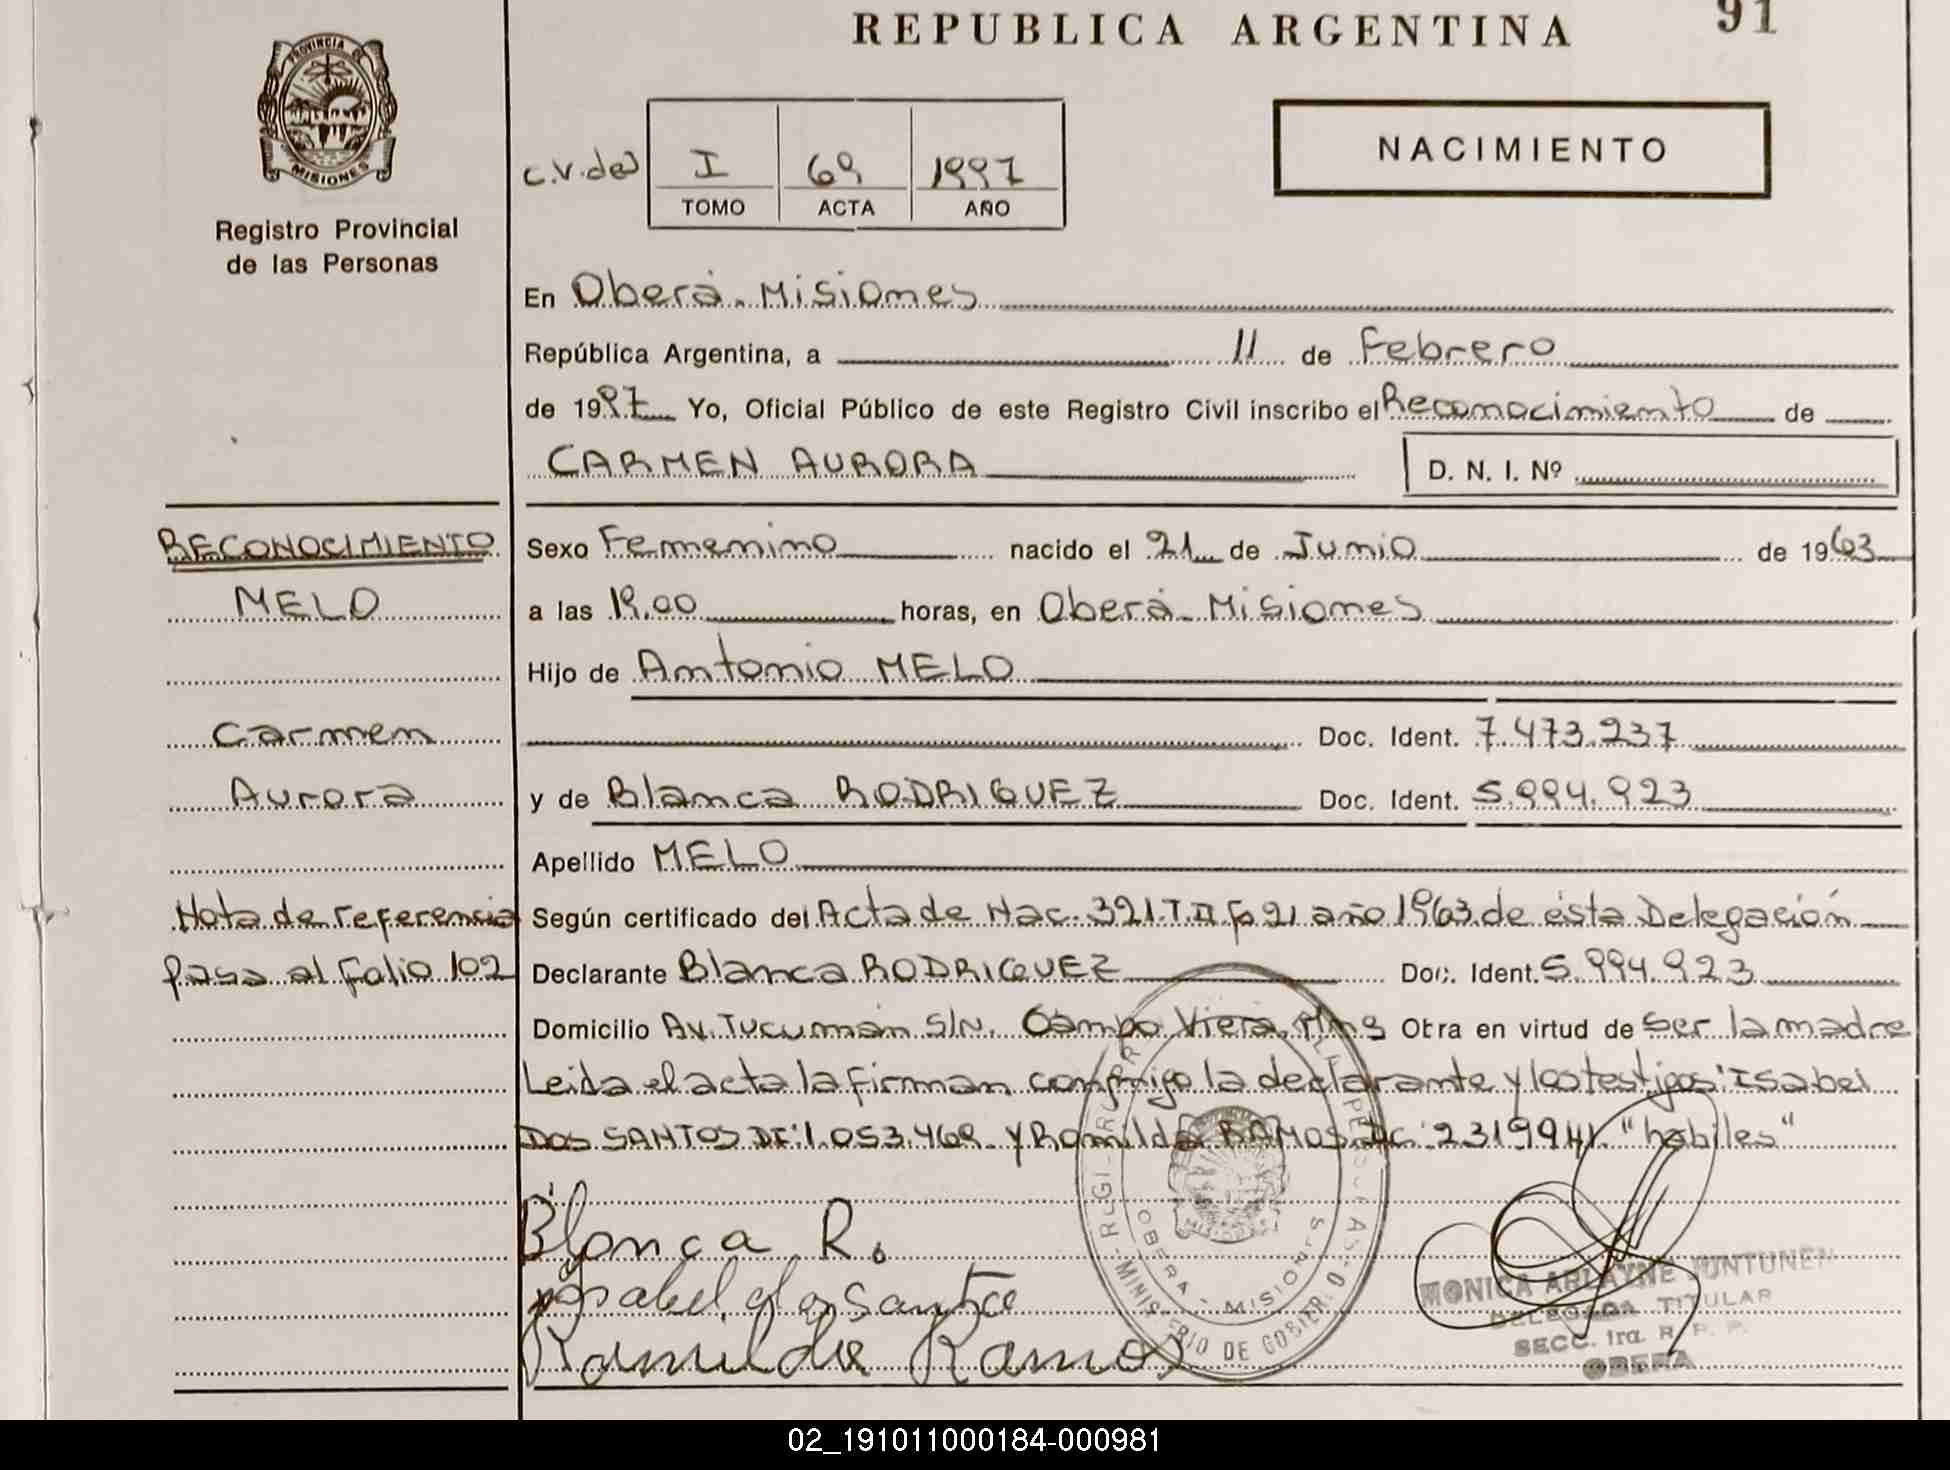 REPUBLICA ARGENTINA 91
PROVINCIA DE MISIONES
Registro Provincial
de las Personas
c.v.de
I 69 1997
TOMO ACTA AÑO
NACIMIENTO
En Oberá - Misiones
República Argentina, a 11 de Febrero
de 1997 Yo, Oficial Público de este Registro Civil inscribo el Reconocimiento de
CARMEN AURORA D. N. I. Nº
RECONOCIMIENTO
MELO
Carmen
Aurora
Nota de referencia
pasa al folio 102
Sexo Femenino nacido el 21 de Junio de 1963
a las 19.00 horas, en Oberá - Misiones
Hijo de Antonio MELO
Doc. Ident. 7.473.237
y de Blanca RODRIGUEZ Doc. Ident. 5.994.923
Apellido MELO
Según certificado del Acta de Nac. 321 T.II Fo 21 año 1963 de ésta Delegación
Declarante Blanca RODRIGUEZ Doc. Ident. 5.994.923
Domicilio Av. Tucumán S/N. Campo Viera, Mnes Obra en virtud de Ser la madre
Leida el acta la firman conmigo la declarante y los testigos: Isabel
DOS SANTOS DI: 1.053.469 y Romilda RAMOS "habiles"
Blanca R.
Isabel dos santos
Romilda Ramos
MINISTERIO DE GOBIERNO
OBERA - MISIONES
MONICA ARLAYNE JUNTUNEN
DELEGADA TITULAR
SECC. 1ra. R. P. P.
OBERA
02_191011000184-000981